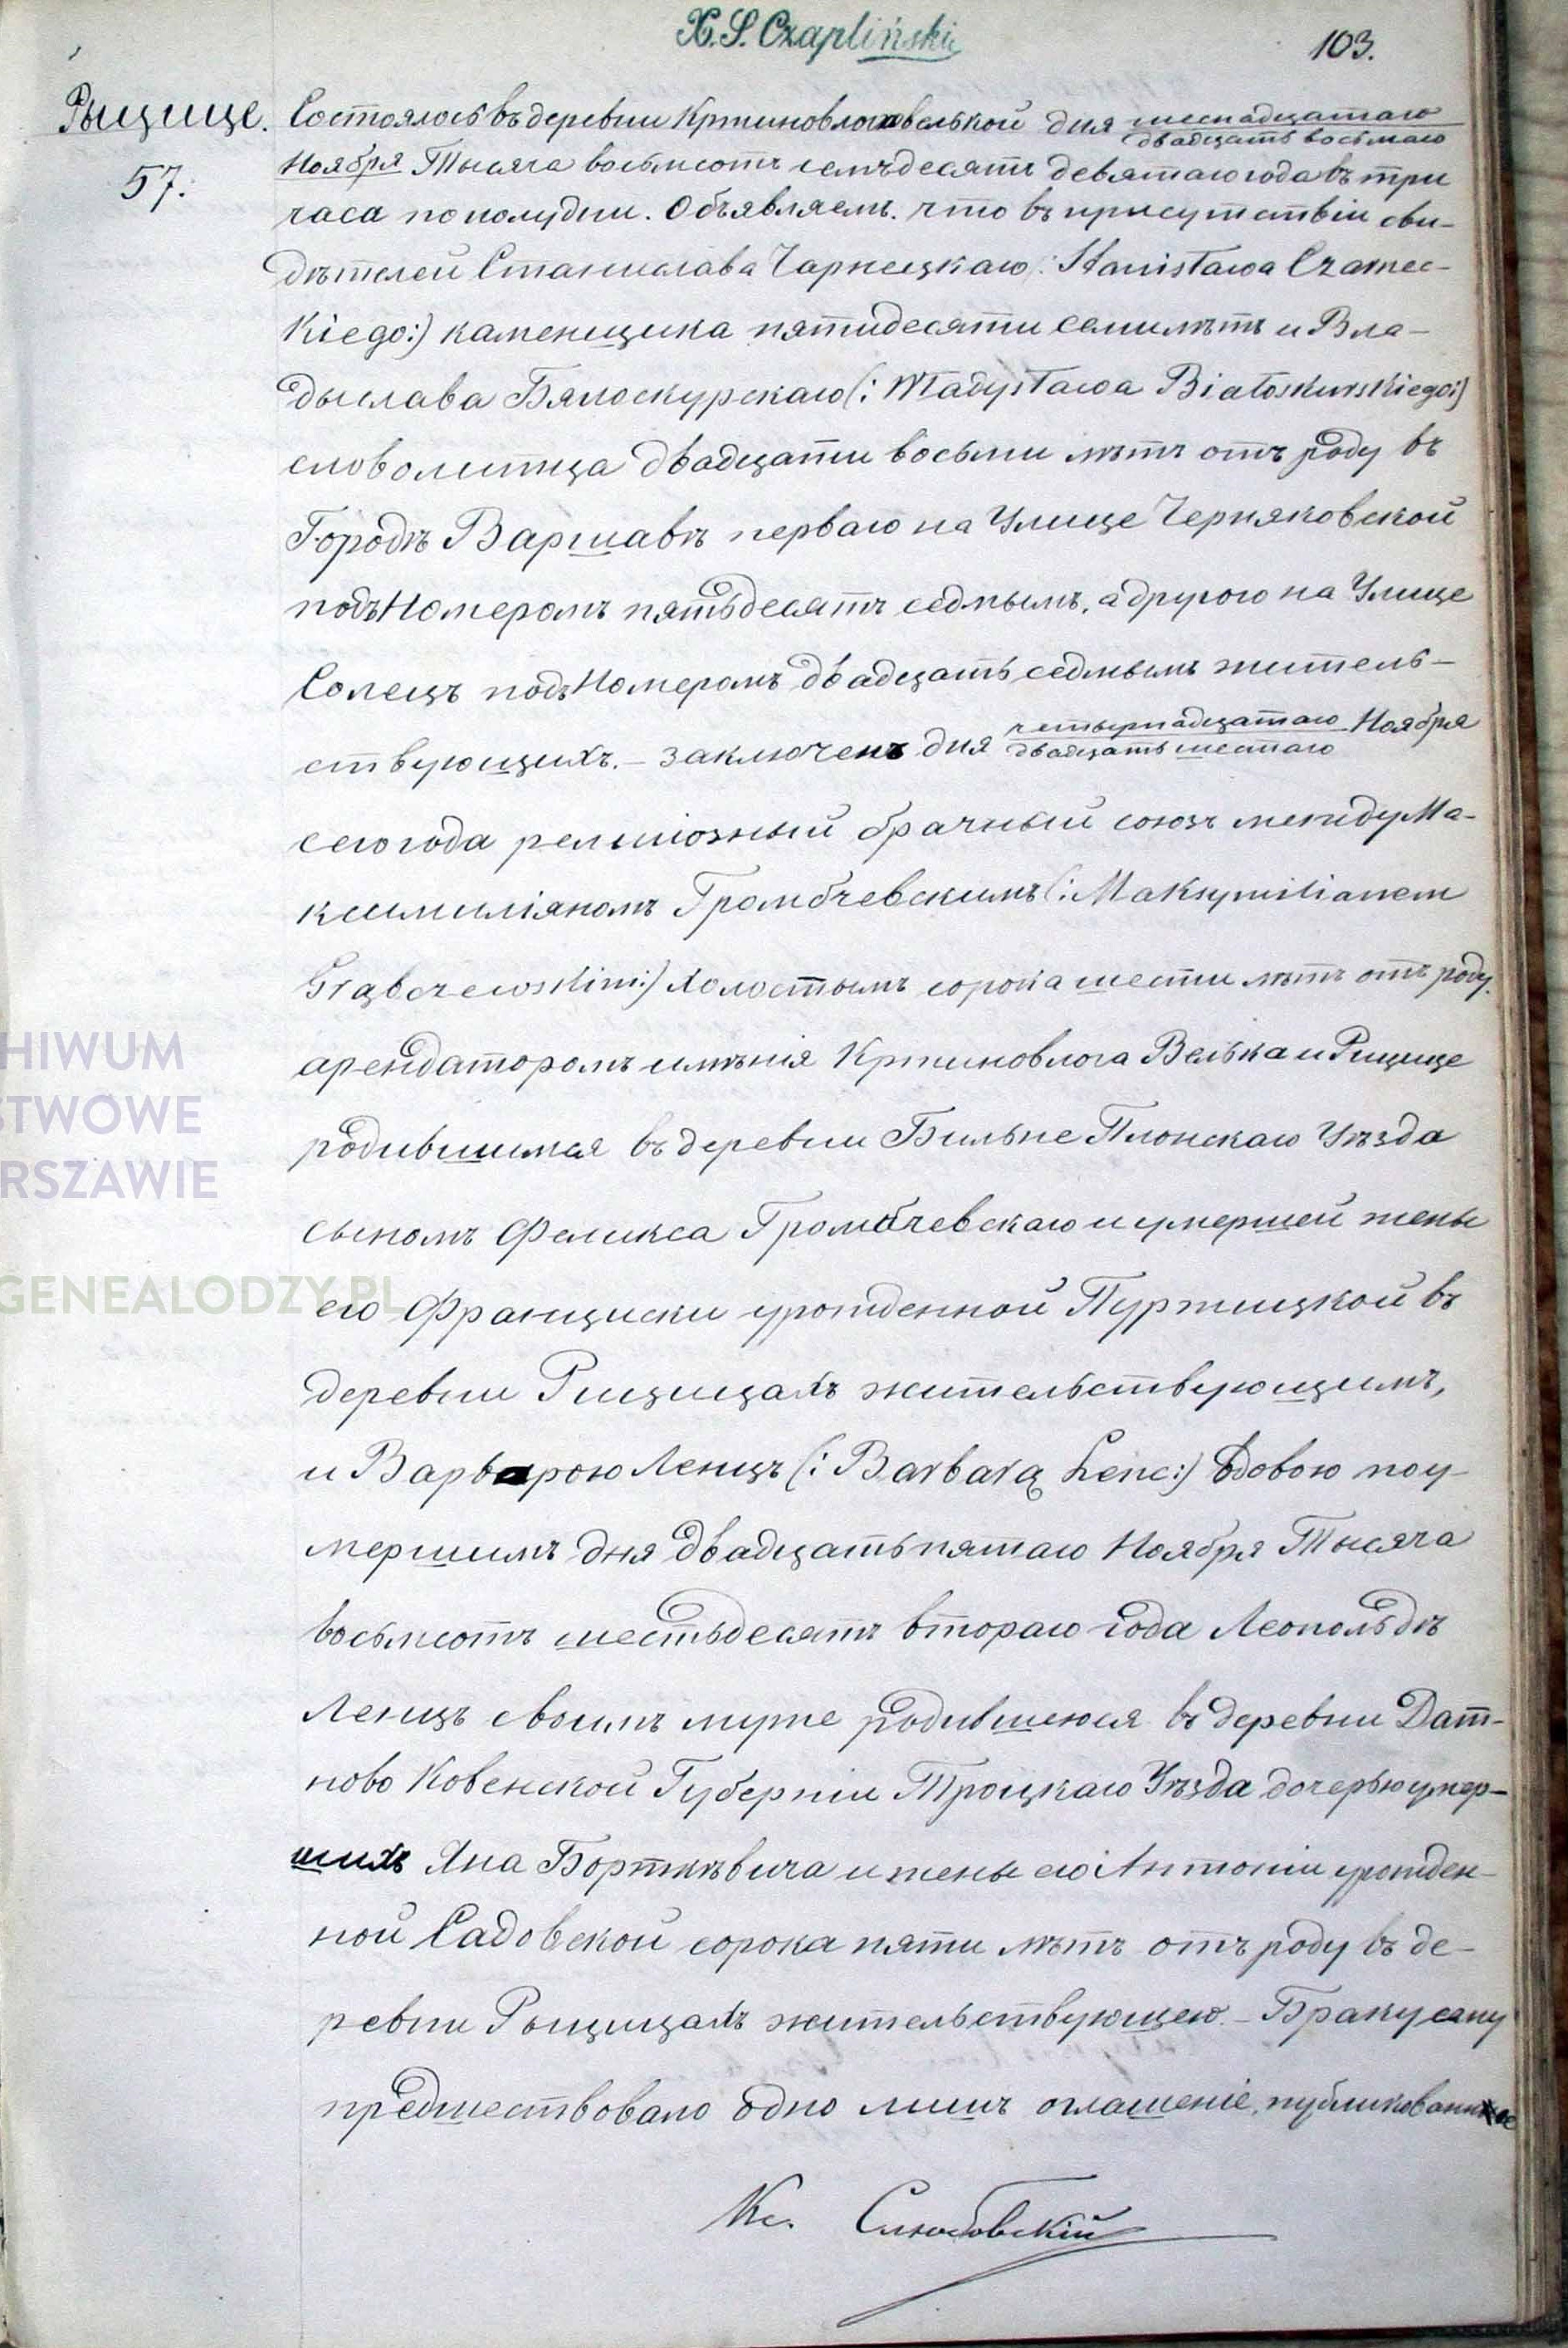 X. S. Czapliński
103.
Рыщице.
57.
Состоялось въ деревни Кржиновлога велькой дня шестнадцатаго
двадцать восьмаго
Ноября Тысяча восьмсотъ семъдесятъ девятаго года въ три
часа пополудни. Объявляемъ, что въ присутствіи сви-
дѣтелей Станислава Чарнецкаго (: Stanisława Czarnec-
kiego:) каменщика пятидесяти семи лѣтъ и Вла-
дыслава Бялоскурскаго (: Władysława Białoskurskiego:)
словолитца двадцати восьми лѣтъ отъ роду въ
Городѣ Варшавѣ перваго на Улице Черняковской
подъ Номеромъ пятьдесятъ седмымъ, а другого на Улице
Солецъ подъ Номеромъ двадцать седмымъ житель-
ствующихъ. – заключенъ дня четырнадцатаго Ноября
двадцать шестаго
сего года религіозный брачный союзъ между Ма-
ксимиліяномъ Громбчевскимъ (: Maksymilianem
Grąbczewskim:) холостымъ сорока шести лѣтъ отъ роду,
арендаторомъ имѣнія Кржиновлога Велька и Рищице
родившимся въ деревни Бильне Плонскаго Уѣзда
сыномъ Феликса Громбчевскаго и умершей жены
его Франциски урожденной Пуржицкой въ
деревни Рищицахъ жительствующимъ,
и Варварою Ленцъ (: Barbarą Lenc:) Вдовою по у-
мершимъ дня двадцать пятаго Ноября Тысяча
восьмсотъ шестьдесятъ втораго года Леопольдѣ
Ленцъ своимъ мужe родившеюся въ деревни Дат-
ново Ковенской Губерніи Троцкаго Уѣзда дочерью умер-
шихъ Яна Борткѣвича и жены его Антоніи урожден-
ной Садовской сорока пяти лѣтъ отъ роду въ де-
ревни Рыщицахъ жительствующею. – Браку сему
предшествовало одно лишъ оглашеніе, публикованное
Кс. Слюбовскій